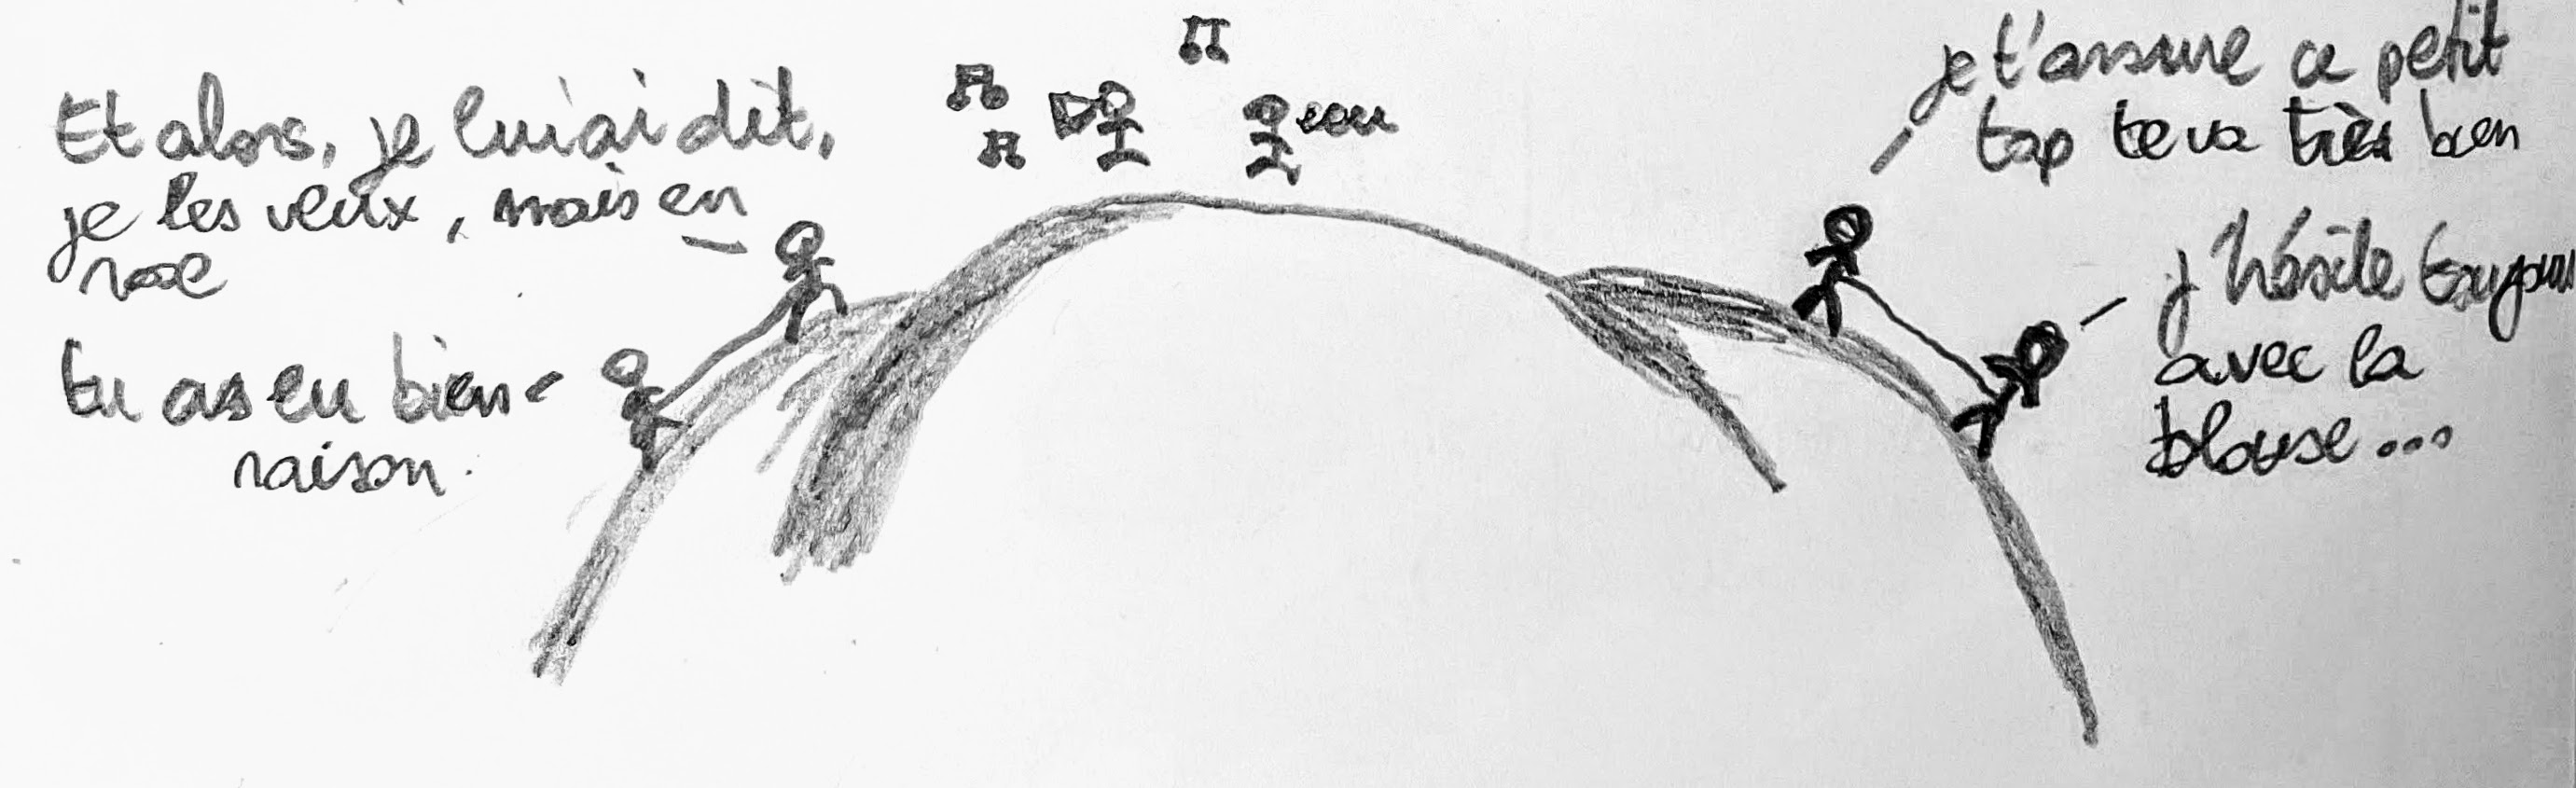 Et alors, je lui ai dit,
je les veux, mais en
rose
tu as eu bien
raison.
je t'assure ce petit
top te va très bien
j'hésite toujours
avec la
blouse...